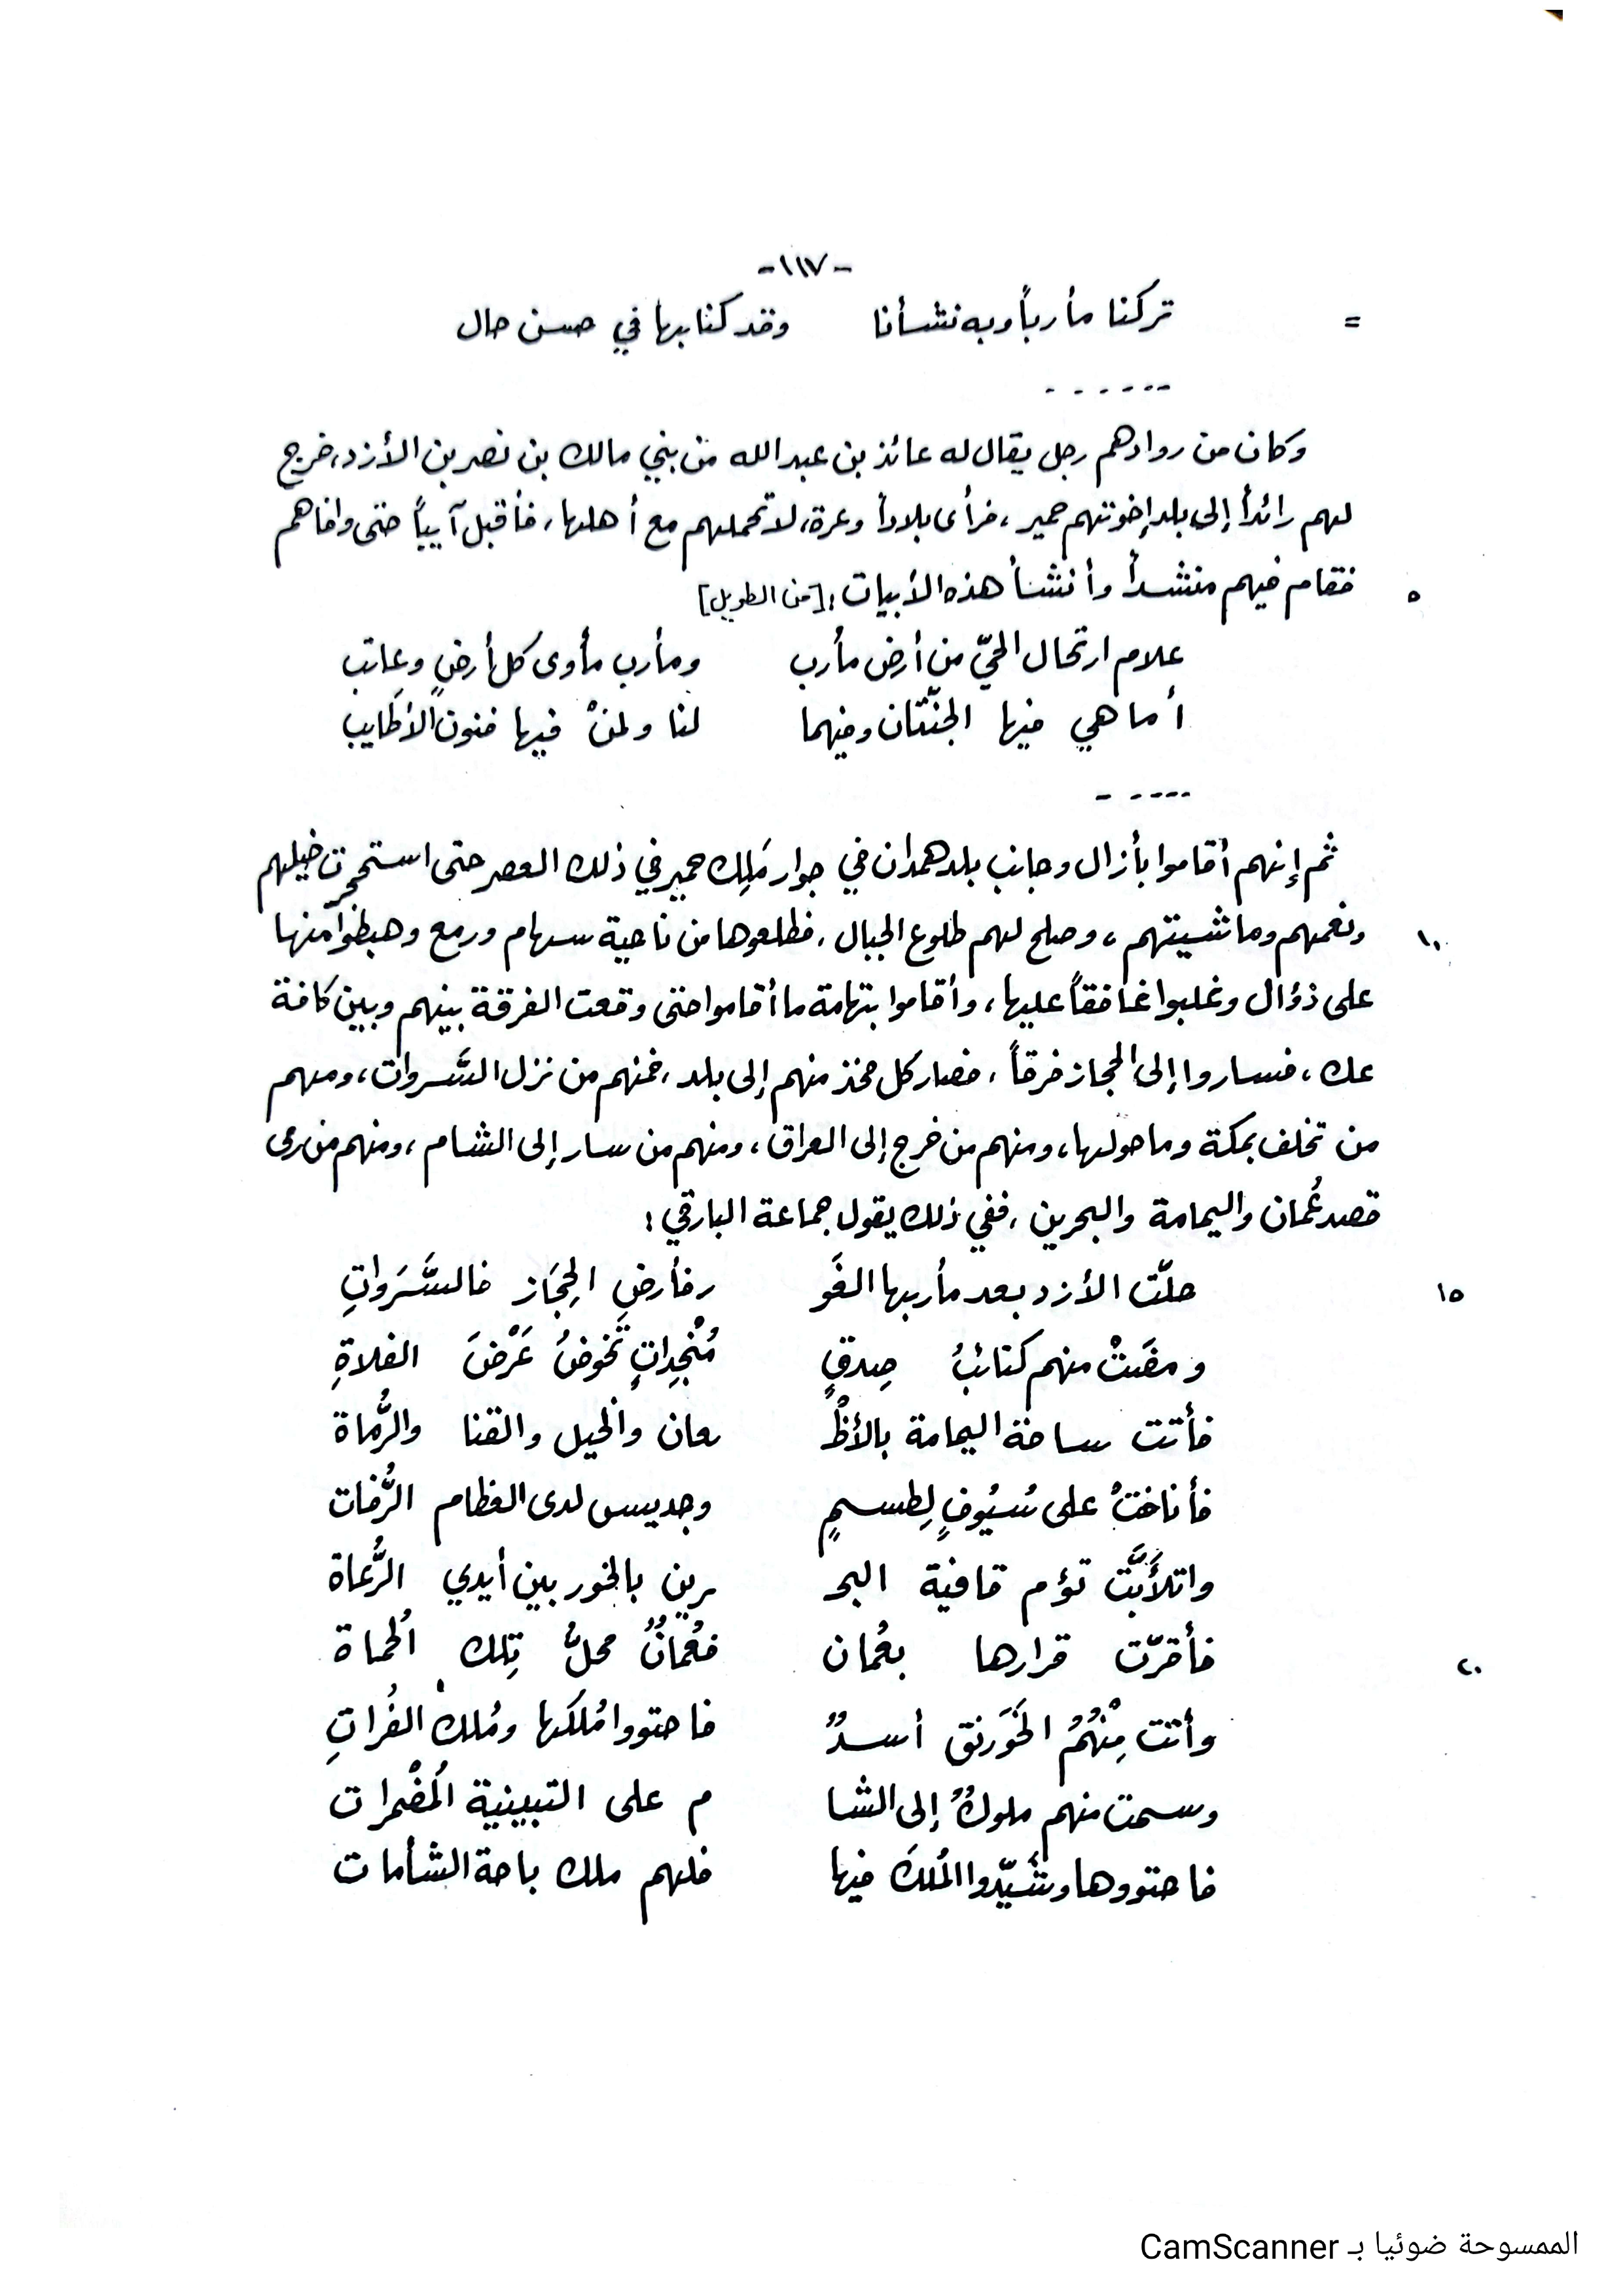 -١١٧-
= تركنا مأرباً وبه نشأنا وقد كنا بها في حسن حال
------
وكان من روادهم رجل يقال له عائذ بن عبد الله من بني مالك بن نصر بن الأزد، خرج
لهم رائداً إلى بلد إخوتهم حمير، فرأى بلاداً وعرة، لا تحملهم مع أهلها، فأقبل آيباً حتى وافاهم
٥ فقام فيهم منشداً وأنشأ هذه الأبيات: [من الطويل]
علام ارتحال الحيّ من أرض مأرب ومأرب مأوى كل أرضٍ وعاتب
أما هي فيها الجنّتان وفيهما لنا ولمنْ فيها فنون الأطَايب
-----
ثم إنهم أقاموا بأزال وجانب بلد همدان في جوار مَلِك حمير في ذلك العصر حتى استحجرت خيلهم
١٠ ونعمهم وماشيتهم، وصلح لهم طلوع الجبال، فطلعوها من ناحية سهام ورمع وهبطوا منها
على ذؤال وغلبوا غافقاً عليها، وأقاموا بتهامة ما أقاموا حتى وقعت الفرقة بينهم وبين كافة
عك، فساروا إلى الحجاز فرقاً، فصار كل فخذ منهم إلى بلد، فمنهم من نزل السَّروات، ومنهم
من تخلف بمكة وما حولها، ومنهم من خرج إلى العراق، ومنهم من سار إلى الشام، ومنهم من رمى
قصد عُمان واليمامة والبحرين، ففي ذلك يقول جماعة البارقي:
١٥ حلّت الأزد بعد مأربها الغَو رفأرضِ الحِجَاز فالسَّرَواتِ
ومضَتْ منهم كتائبُ صِدقٍ مُنْجِداتٍ تَخوضُ عَرْضَ الفلاةِ
فأتت ساحة اليمامة بالأظْ عان والخيل والقنا والرُّماة
فأناختْ على سُيُوفٍ لِطسمٍ وجديس لدى العظام الرُّفات
واتلأَبَّت تؤم قافية البحـ ـرين بالخور بين أيدي الرُّعاة
٢٠ فأقرّت قرارها بعُمان فعُمانٌ محلُّ تِلك الحُماة
وأتت مِنْهُمُ الخَوَرنق أسدٌ فاحتووا مُلكَها ومُلكَ الفُراتِ
وسمت منهم ملوكٌ إلى الشا م على التبينية المُضْمرات
فاحتووها وشَيّدوا المُلكَ فيها فلهم ملك باحة الشأمات
الممسوحة ضوئيا بـ CamScanner